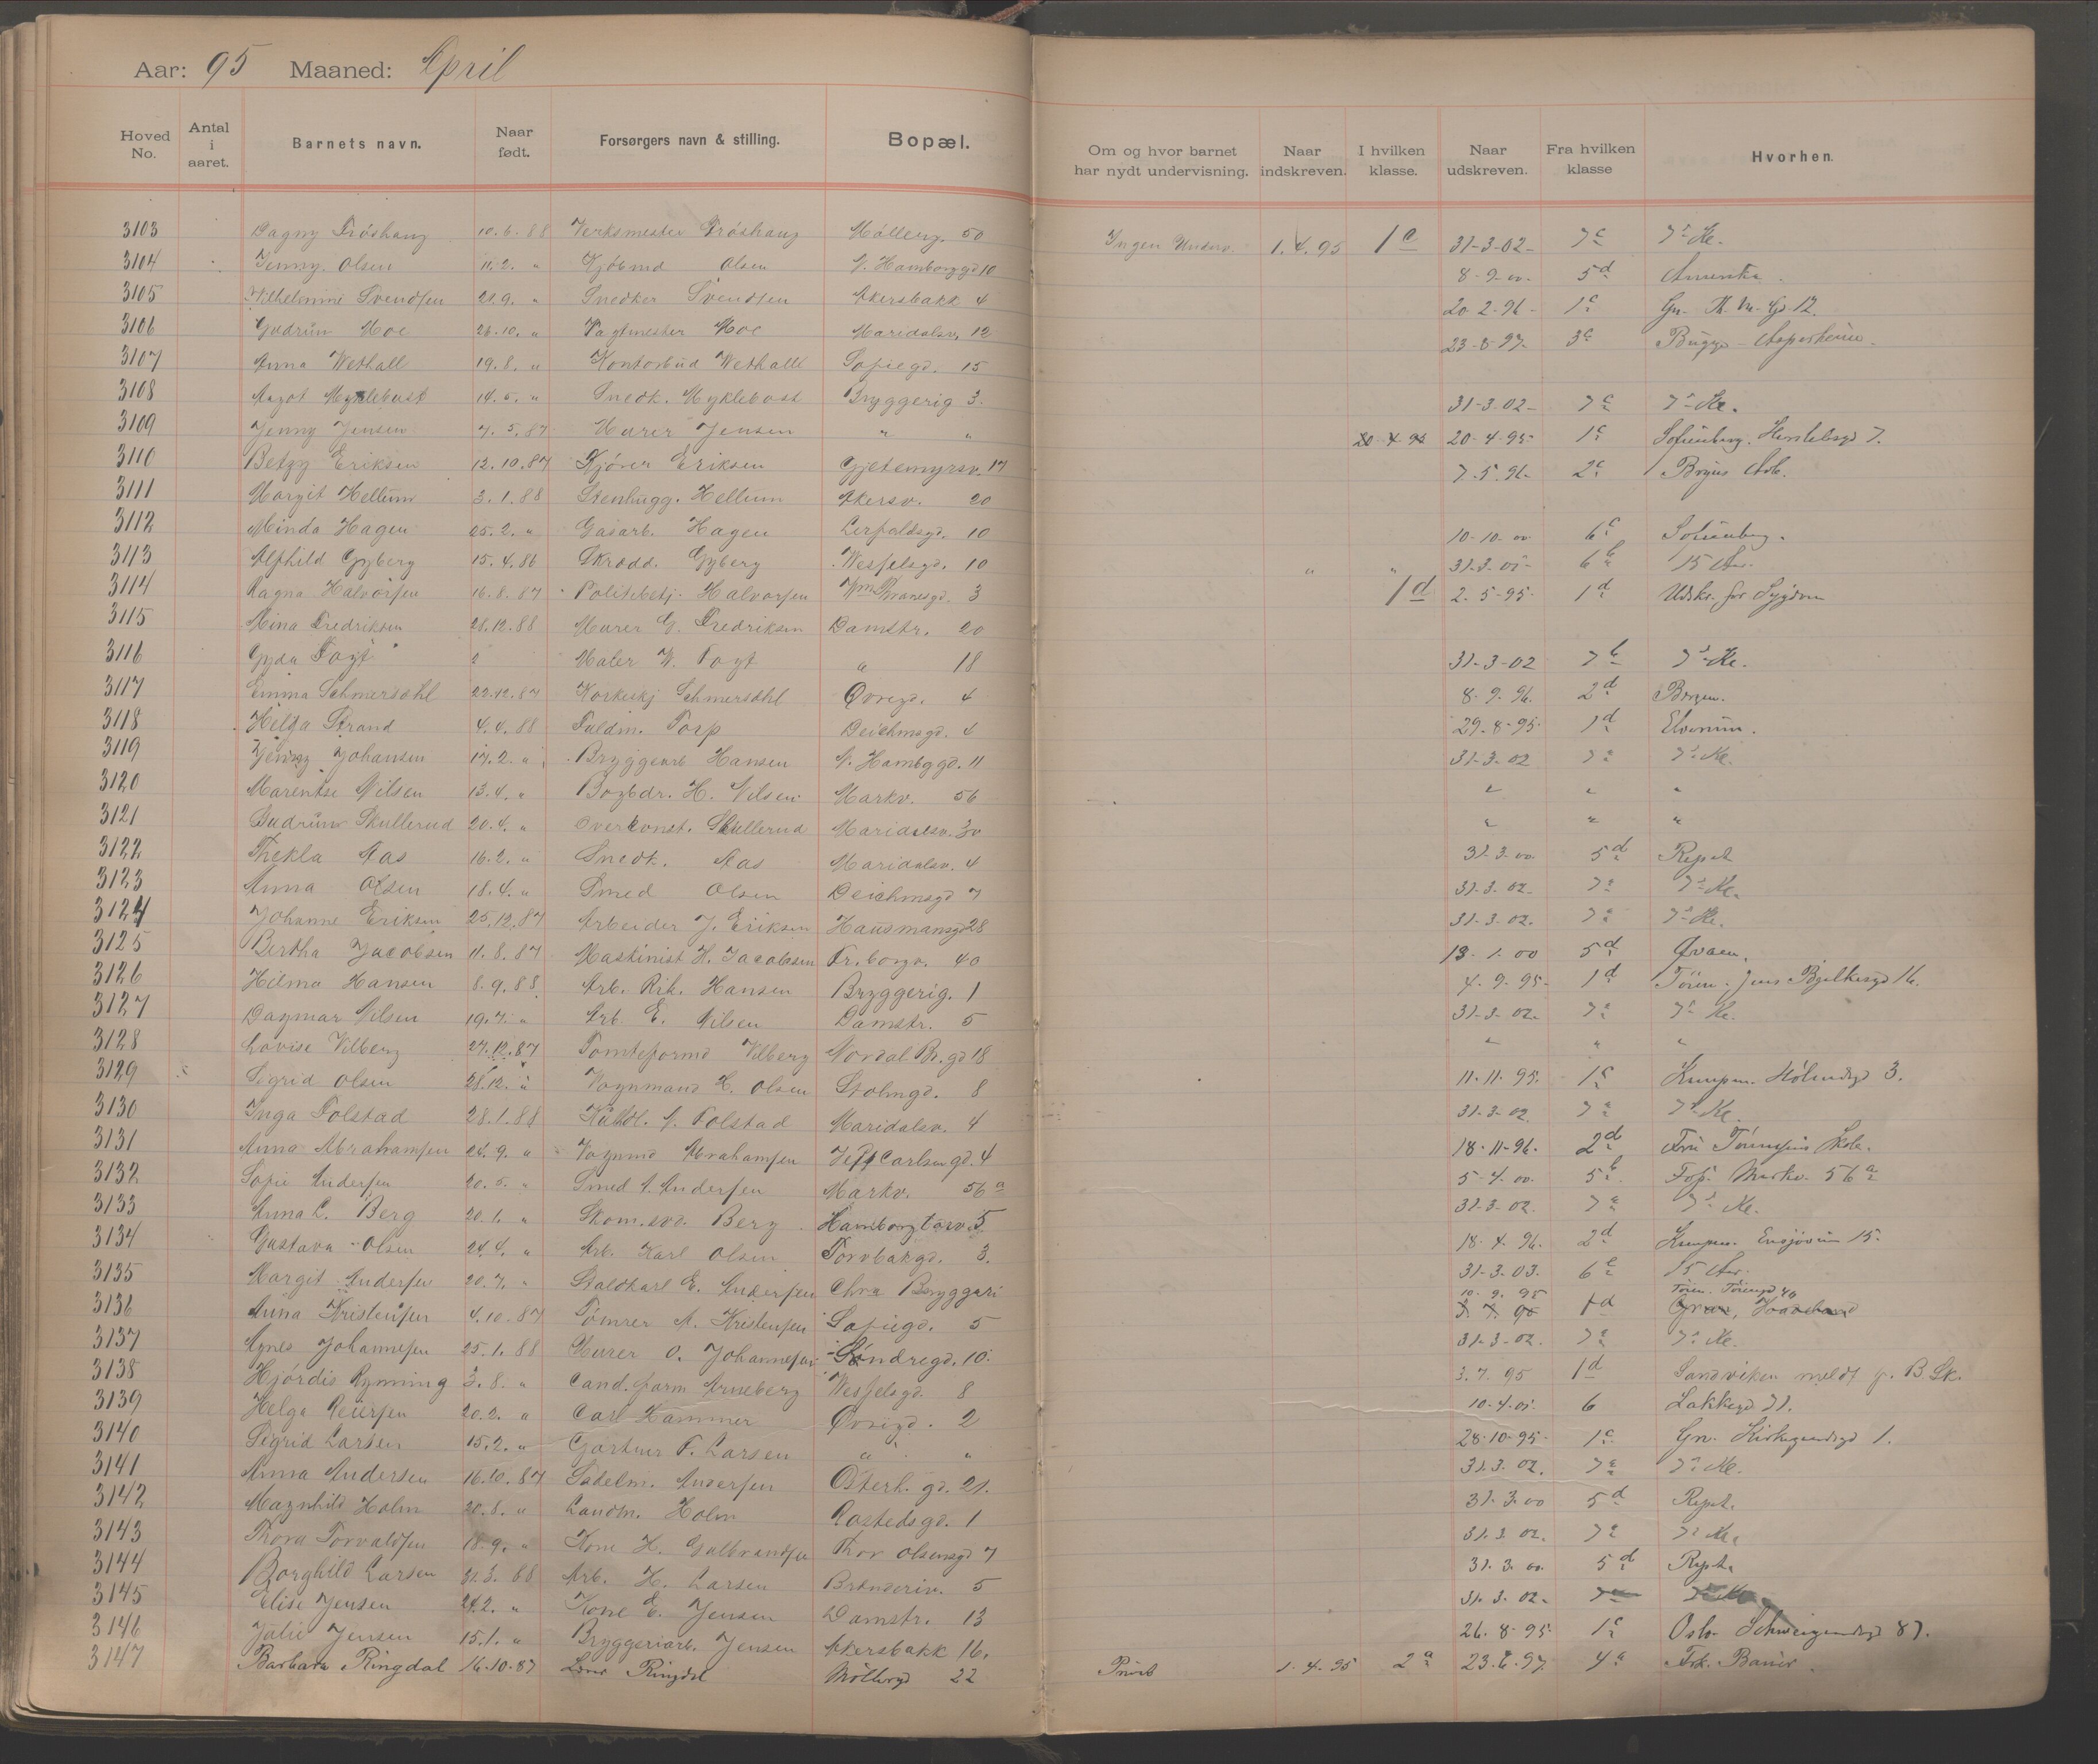 Aar: 95 Maaned: April
Hoved No. Antal i aaret. Barnets navn. Naar født. Forsørgers navn & stilling. Bopæl. Om og hvor barnet har nydt undervisning. Naar indskreven. I hvilken klasse. Naar udskreven. Fra hvilken klasse Hvorhen.
3103 Dagny Fröshaug 10.6.88 Verksmester Fröshaug Möllerg. 50 Ingen Underv. 1.4.95 1c 31-3-02 7c 7de Kl.
3104 Jenny Olsen 11.2. „ Kjöbmd Olsen N. Hamborggd 10 8-9-00 5d Amerika
3105 Vilhelmine Svendsen 21.9. „ Snedker Svendsen Akersbakk 4 20-2-96 1c Gr.
3106 Gudrun Moe 26.10. „ Vagtmester Moe Maridalsv. 12 23-8-97 3c
3107 Anna Wethall 19.8. „ Kontorbud Wethall Sofiegd. 15
3108 Aagot Myklebust 14.5. „ Snedk. Myklebost Bryggerig 3. 31-3-02 7c 7de Kl.
3109 Jenny Jensen 7.5.87 Murer Jensen „ „ 20-4-95 20-4-95 1c Sofienberg. 7.
3110 Betzy Eriksen 12.10.87 Kjörer Eriksen Gjetemyrsv. 17 7-5-96 2c
3111 Margit Hellum 3.1.88 Stenhugg. Hellum Akersv. 20
3112 Minda Hagen 25.2. „ Gasarb. Hagen Lerfaldsgd. 10 10-10-00 6c Sofienberg.
3113 Alfhild Gyberg 15.4.86 Skradd. Gyberg Wesselsgd. 10 „ „ 31-3-01 6b 15 Aar.
3114 Ragna Halvorsen 16.8.87 Politibetj. Halvorsen 3 1d 2-5-95 1d Udskr. for Sygdom
3115 Mina Fredriksen 28.12.88 Murer G. Fredriksen Damstr. 20
3116 Gyda Fogt Maler W. Fogt „ 18 31-3-02 7b 7de Kl.
3117 Emma Schmersahl 22.12.87 Korkeskj Schmersahl Øvregd. 4 8-9-96 2d Bergen.
3118 Helga Strand 4.4.88 Fuldm. Torp Deichmsgd. 4 29-8-95 1d Elverum.
3119 Jenny Johansen 17.2. „ Bryggearb Hansen N. Hambggd. 11 31-3-02 7a 7de Kl.
3120 Marentse Nilsen 13.4. „ Bogbdr. H. Nilsen Markv. 56 „ „ „
3121 Gudrun Skullerud 20.4. „ Overkonst. Skullerud Maridalsv. 30 „ „ „
3122 Thekla Aas 16.2. „ Snedk. Aas Maridalsv. 4 31-3-00 5d Repet
3123 Anna Olsen 18.4. „ Smed Olsen Deichmsgd 7 31-3-02 7a 7de Kl.
3124 Johanne Eriksen 25.12.87 Arbeider J. Eriksen Hausmansgd 28 31-3-02. 7a 7de Kl.
3125 Bertha Jacobsen 11.8.87 Maskinist H. Jacobsen Fr.borgv. 40 13-1-00 5d
3126 Hilma Hansen 8.9.88 Arb. Rik. Hansen Bryggerig. 1 4-9-95 1d Tøien. Jens Bjelkesgd 16.
3127 Dagmar Nilsen 19.7. „ Arb. E. Nilsen Damstr. 5 31-3-02 7a 7de Kl.
3128 Lovise Vilberg 27.12.87 Tomteformd Vilberg Nordal Br.gd 18 „ „ „
3129 Sigrid Olsen 28.12. „ Vognmand H. Olsen Stolmgd. 8 11-11-95. 1c Kampen. 3.
3130 Inga Folstad 28.1.88 A. Folstad Maridalsv. 4 31-3-02 7a 7de Kl.
3131 Anna Abrahamsen 26.9. „ Vognmd Abrahamsen Carlsengd. 4 18-11-96. 2d Skole.
3132 Sofie Andersen 20.5. „ Smed A. Andersen Markv. 56a 5-4-00 5b Markv. 56a
3133 Anna C. Berg 20.1. „ Skom.svd. Berg Hamborgtorv. 5 31-3-02. 7a 7de Kl.
3134 Gustava Olsen 24.4. „ Arb. Karl Olsen Torvbakgd. 3. 18-4-96. 2d Kampen. Ensjøveien 15.
3135 Margit Andersen 20.7. „ Staldkarl E. Andersen Chra Bryggeri 31-3-03. 6c 15 Aar.
10.9.95 Tøien.
3136 Anna Kristensen 4.10.87 Tömrer A. Kristensen Sofiegd. 5 3.7.95 1d Gran, Hadeland
3137 Agnes Johannesen 25.1.88 Murer O. Johannesen Søndregd. 10. 31-3-02. 7a 7de Kl.
3138 Hjördis Rymning 3.8. „ Cand. farm Arneberg Wesselsgd. 8 3.7.95 1d Sandviken meldt f. B. Sk.
3139 Helga Reiersen 20.2. „ Carl Hammer Øvregd. 2 10-4-01. 6 Lakkegd 71.
3140 Sigrid Larsen 15.2. „ Gartner F. Larsen „ „ 28-10-95 1c Gr. 1.
3141 Anna Andersen 16.10.87 Sadelm. Andersen Osterh. gd. 21. 31.3.02. 7a 7de Kl.
3142 Magnhild Holm 20.8. „ Landm. Holm Rostedsgd. 1 31-3-00 5d Repet.
3143 Thora Torvaldsen 18.9. „ Kone H. Gulbrandsen Thor Olsensgd 7 31.3.02. 7a 7de Kl.
3144 Borghild Larsen 31.3.88 Arb. H. Larsen Brenneriv. 5 31.3.00. 5d Repet.
3145 Elise Jensen 21.2. „ Kone E. Jensen Damstr. 13 31.3.02.
3146 Julie Jensen 15.1. „ Bryggeriarb. Jensen Akersbakk 16. 26.8.95 1c Oslo Schweigaardsgd 87.
3147 Barbara Ringdal 16.10.87 Ringdal Möllergd 22 Privat 1.4.95 2a 23.6.97. 4a Frk. Bauer.